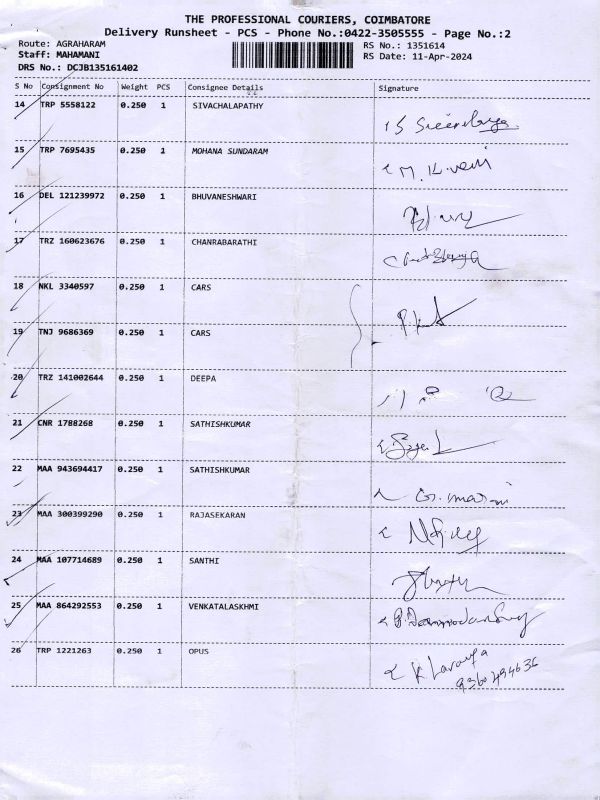 THE PROFESSIONAL COURIERS, COIMBATORE
Delivery Runsheet - PCS - Phone No.:0422-3505555 - Page No.:2
Route: AGRAHARAM RS No.: 1351614
Staff: MAHAMANI RS Date: 11-Apr-2024
DRS No.: DCJB135161402
S No Consignment No Weight PCS Consignee Details Signature
14 TRP 5558122 0.250 1 SIVACHALAPATHY
15 TRP 7695435 0.250 1 MOHANA SUNDARAM
16 DEL 121239972 0.250 1 BHUVANESHWARI
17 TRZ 160623676 0.250 1 CHANRABARATHI
18 NKL 3340597 0.250 1 CARS
19 TNJ 9686369 0.250 1 CARS
20 TRZ 141002644 0.250 1 DEEPA
21 CNR 1788268 0.250 1 SATHISHKUMAR
22 MAA 943694417 0.250 1 SATHISHKUMAR
23 MAA 300399290 0.250 1 RAJASEKARAN
24 MAA 107714689 0.250 1 SANTHI
25 MAA 864292553 0.250 1 VENKATALASKHMI
26 TRP 1221263 0.250 1 OPUS K Lavanya
9360494636